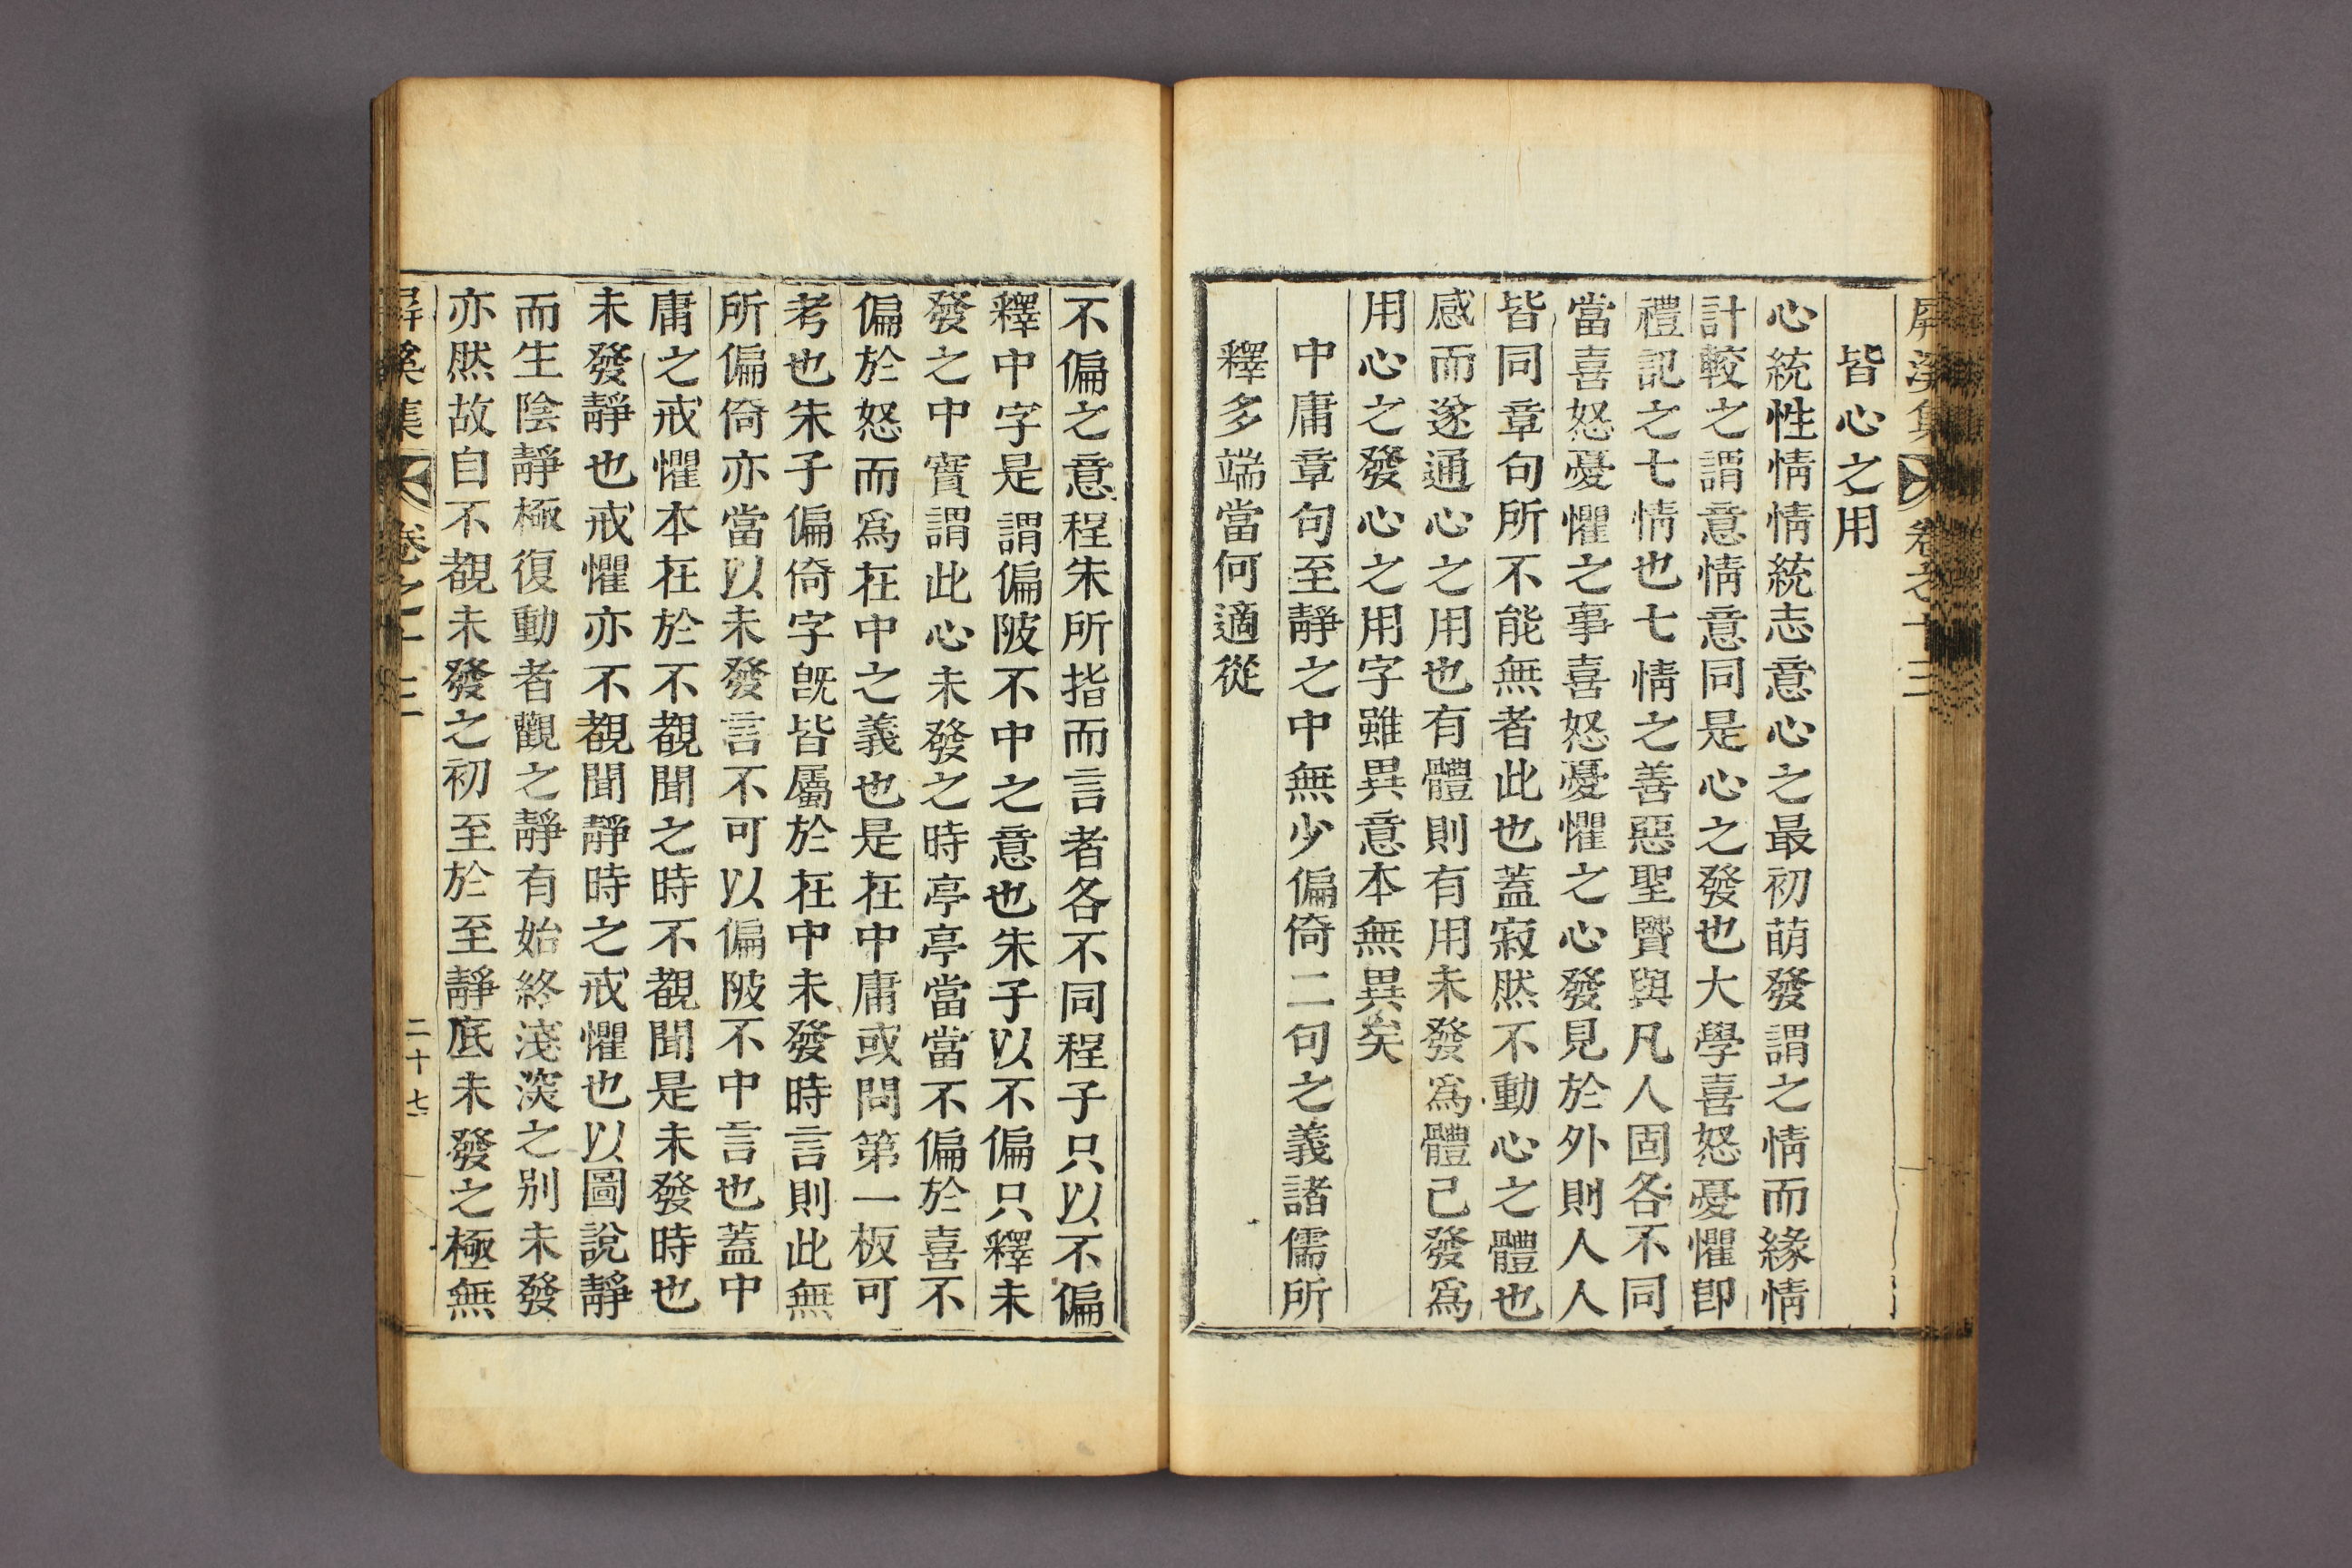 屛溪集 卷之十三
皆心之用
心統性情情統志意心之最初萌發謂之情而緣情
計較之謂意情意同是心之發也大學喜怒憂懼卽
禮記之七情也七情之善惡聖賢與凡人固各不同
當喜怒憂懼之事喜怒憂懼之心發見於外則人人
皆同章句所不能無者此也蓋寂然不動心之體也
感而遂通心之用也有體則有用未發爲體已發爲
用心之發心之用字雖異意本無異矣
中庸章句至靜之中無少偏倚二句之義諸儒所
釋多端當何適從
不偏之意程朱所指而言者各不同程子只以不偏
釋中字是謂偏陂不中之意也朱子以不偏只釋未
發之中實謂此心未發之時亭亭當當不偏於喜不
偏於怒而爲在中之義也是在中庸或問第一板可
考也朱子偏倚字旣皆屬於在中未發時言則此無
所偏倚亦當以未發言不可以偏陂不中言也蓋中
庸之戒懼本在於不覩聞之時不覩聞是未發時也
未發靜也戒懼亦不覩聞靜時之戒懼也以圖說靜
而生陰靜極復動者觀之靜有始終淺深之別未發
亦然故自不覩未發之初至於至靜底未發之極無
屛溪集 卷之十三 二十七